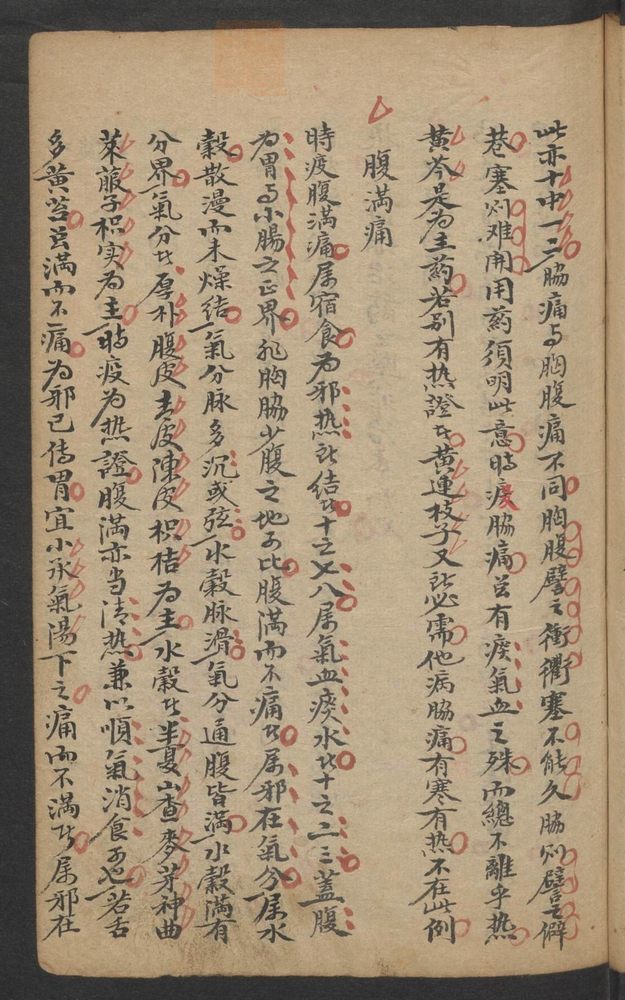 此亦十中一二脇痛与胸腹痛不同胸腹譬之衝衢塞不能久脇则譬之僻
巷塞则难開用药须明此意時疫脇痛岂有痰氣血之殊而總不離乎热
黄芩是为主药若别有热證者黄連枝子又所必需他病脇痛有寒有热不在此例
腹满痛
時疫腹满痛属宿食为邪热所结者十之七八属氣血痰水者十之二三蓋腹
为胃与小腸之正界非胸脇少腹之地可比腹满而不痛者属邪在氣分属水
穀散漫而未燥结氣分脉多沉或弦水穀脉滑氣分通腹皆满水穀满有
分界氣分者厚朴腹皮青皮陳皮枳桔为主水穀者半夏山查麥芽神曲
莱菔子枳实为主時疫为热證腹满亦当清热兼以順氣消食可也若舌
多黄苔岂满而不痛为邪已传胃宜小承氣湯下之痛而不满者属邪在